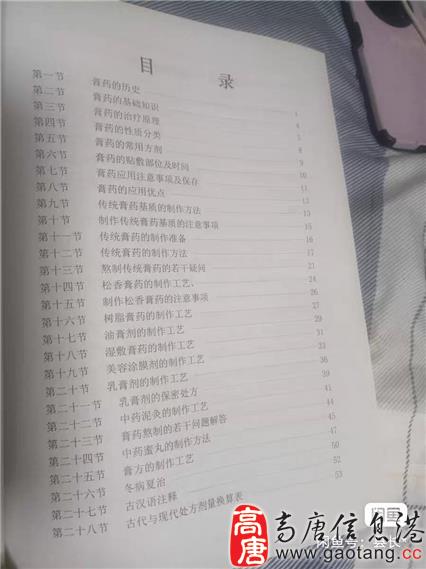 目 录
第一节 膏药的历史 1
第二节 膏药的基础知识 4
第三节 膏药的治疗原理 5
第四节 膏药的性质分类 8
第五节 膏药的常用方剂 9
第六节 膏药的贴敷部位及时间 10
第七节 膏药应用注意事项及保存 11
第八节 膏药的应用优点 12
第九节 传统膏药基质的制作方法 13
第十节 制作传统膏药基质的注意事项 15
第十一节 传统膏药的制作准备 16
第十二节 传统膏药的制作方法 17
第十三节 熬制传统膏药的若干疑问 21
第十四节 松香膏药的制作工艺、 24
第十五节 制作松香膏药的注意事项 26
第十六节 树脂膏药的制作工艺 27
第十七节 油膏剂的制作工艺 29
第十八节 湿敷膏药的制作工艺 31
第十九节 美容涂膜剂的制作工艺 33
第二十节 乳膏剂的制作工艺 36
第二十一节 乳膏剂的保密处方 39
第二十二节 中药泥灸的制作工艺 41
第二十三节 膏药熬制的若干问题解答 44
第二十四节 中药蜜丸的制作方法 45
第二十五节 膏方的制作工艺 47
第二十六节 冬病夏治 50
第二十七节 古汉语注释 52
第二十八节 古代与现代处方剂量换算表 53
高唐 高唐信息港
www.gaotang.cc